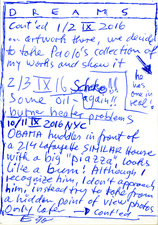 DREAMS
Cont'ed 1/2 IX 2016
an artwork there, we decide
to take Paolo's collection of
my works and skew it
2/3 IX 16
Some oil- Again!!
burner heater problems
he has one in reel!
10/11 IX 2016 NYC
OBAMA huddles in front of
a 214 Lafayette SIMILAR House
with a big "piazza", looks
like a bum! Although I
recognize him, I don't approach
him, instead try to take from
a hidden point of view photos
Only later → cont'ed